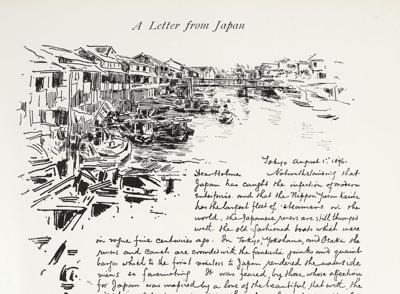 A Letter from Japan
Tokyo August 1st 1896.
Dear Holme Notwithstanding that
Japan has caught the infection of modern
enterprise and that the Nippon Yusen Kaisha
has the largest fleet of steamers in the
world, the Japanese rivers are still thronged
with the old fashioned boats which were
in vogue five centuries ago. In Tokyo, Yokohama, and Osaka the
rivers and canals are crowded with the fantastic junks and quaint
barges which to the first visitors to Japan rendered the waterside
views so fascinating. It was feared by those whose affection
for Japan was inspired by a love of the beautiful, that with the